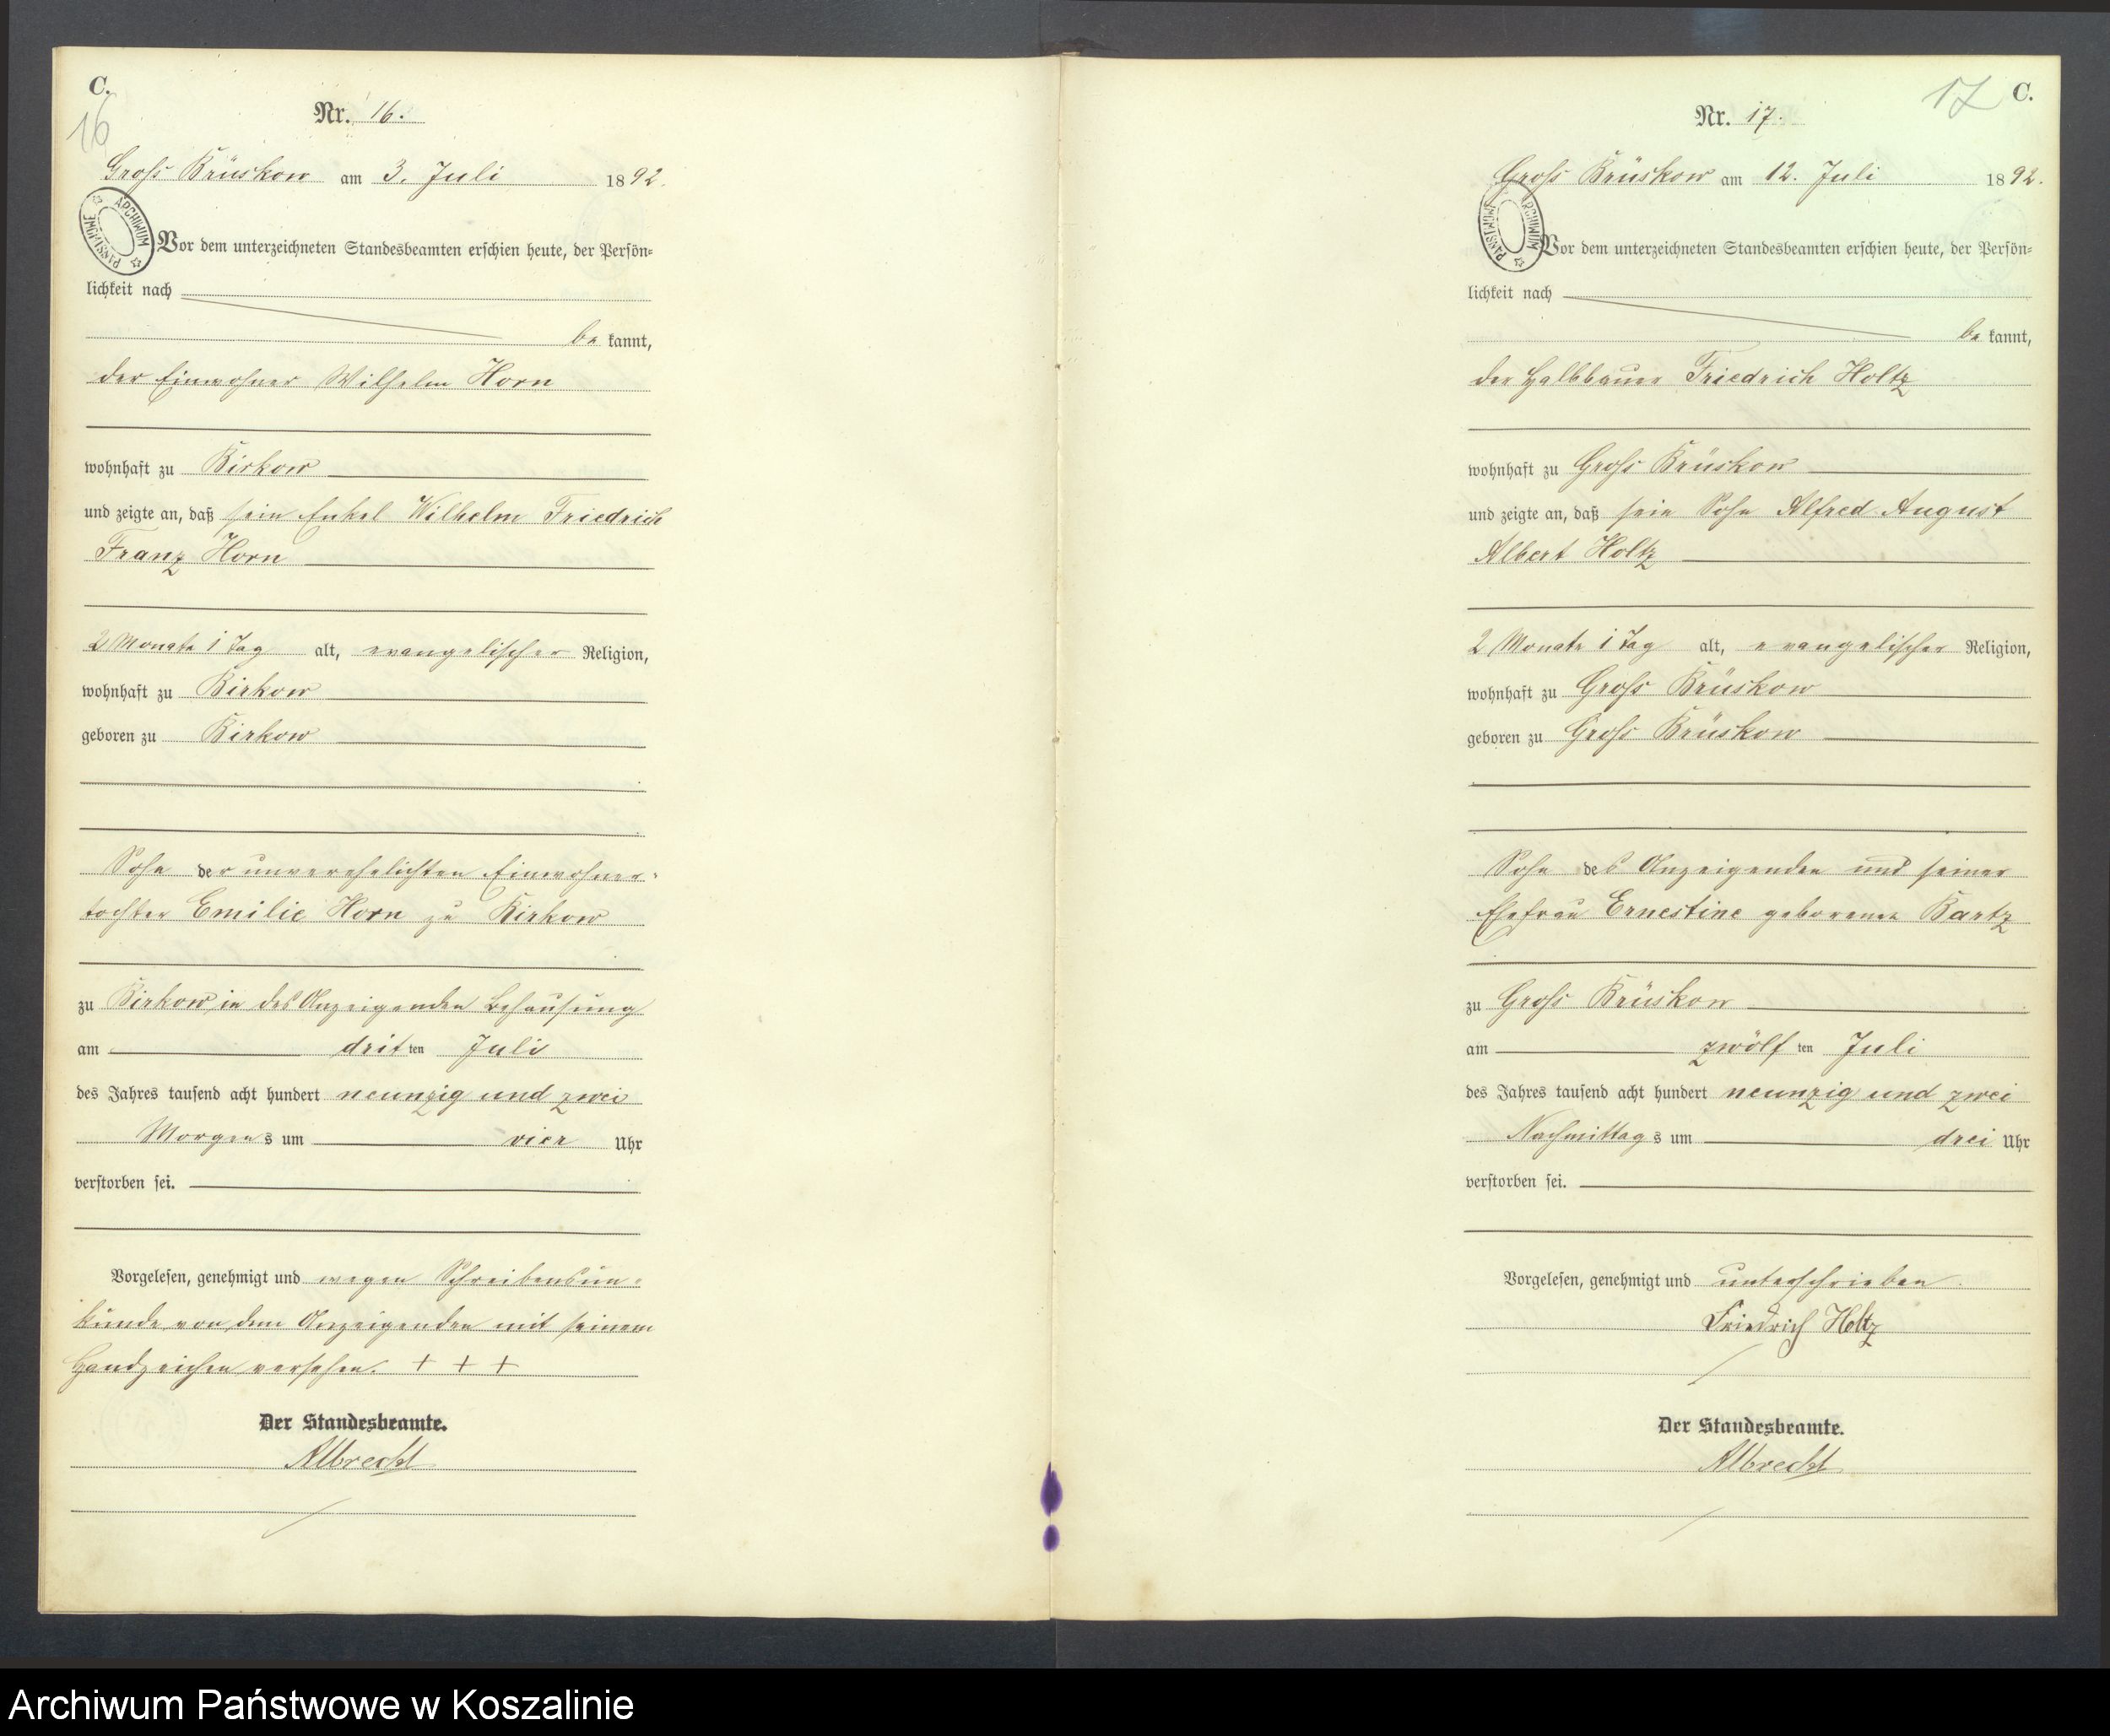 C.
16
Nr. 16.
Groß Brüskow am 3. Juli 1892.
ARCHIWUM PAŃSTWOWE
Vor dem unterzeichneten Standesbeamten erschien heute, der Persön=
lichkeit nach
be kannt,
der Einwohner Wilhelm Horn
wohnhaft zu Birkow
und zeigte an, daß sein Enkel Wilhelm Friedrich
Franz Horn
2 Monate 1 Tag alt, evangelischer Religion,
wohnhaft zu Birkow
geboren zu Birkow
Sohn der unverehelichten Einwohner-
tochter Emilie Horn zu Birkow
zu Birkow, in des Anzeigenden Behausung
am drit ten Juli
des Jahres tausend acht hundert neunzig und zwei
Morgens um vier Uhr
verstorben sei.
Vorgelesen, genehmigt und wegen Schreibensun-
kunde von dem Anzeigenden mit seinem
Handzeichen versehen. + + +
Der Standesbeamte.
Albrecht
17 C.
Nr. 17.
Groß Brüskow am 12. Juli 1892.
ARCHIWUM PAŃSTWOWE
Vor dem unterzeichneten Standesbeamten erschien heute, der Persön=
lichkeit nach
be kannt,
der Halbbauer Friedrich Holtz
wohnhaft zu Groß Brüskow
und zeigte an, daß sein Sohn Alfred August
Albert Holtz
2 Monate 1 Tag alt, evangelischer Religion,
wohnhaft zu Groß Brüskow
geboren zu Groß Brüskow
Sohn des Anzeigenden und seiner
Ehefrau Ernestine geborenen Bartz
zu Groß Brüskow
am zwölf ten Juli
des Jahres tausend acht hundert neunzig und zwei
Nachmittags um drei Uhr
verstorben sei.
Vorgelesen, genehmigt und unterschrieben.
Friedrich Holtz
Der Standesbeamte.
Albrecht
Archiwum Państwowe w Koszalinie